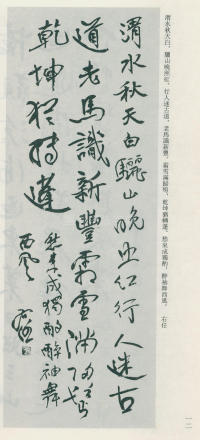 渭水秋天白，驪山晚照紅。行人迷古道，老馬識新豐。霜雪滿歸騎，乾坤猶轉蓬。愁來成獨酌，醉袖舞西風。　右任
渭水秋天白驪山晚照紅行人迷古
道老馬識新豐霜雪滿歸騎
乾坤猶轉蓬
愁來成獨酌醉袖舞
西風
右任
一二